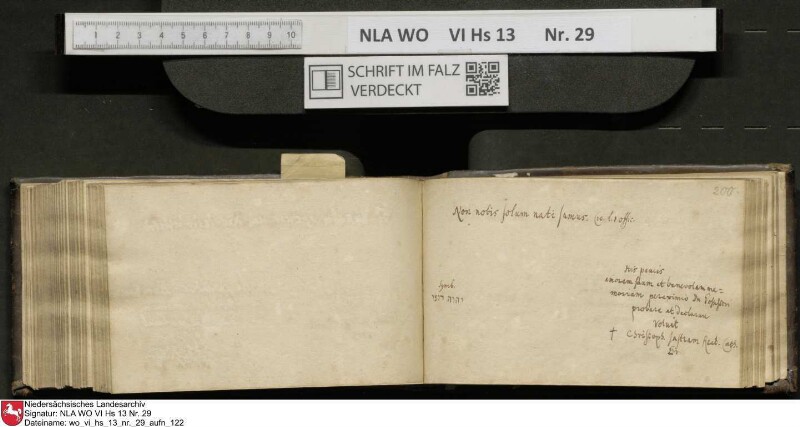 1 2 3 4 5 6 7 8 9 10
NLA WO VI Hs 13 Nr. 29
SCHRIFT IM FALZ
VERDECKT
200
Non nobis solum nati sumus. Cic. l. 1 offic.
his paucis
amorem suum et benevolam me-
moriam
probare et declarare
voluit
† Christoph
Niedersächsisches Landesarchiv
Signatur: NLA WO VI Hs 13 Nr. 29
Dateiname: wo_vi_hs_13_nr._29_aufn_122